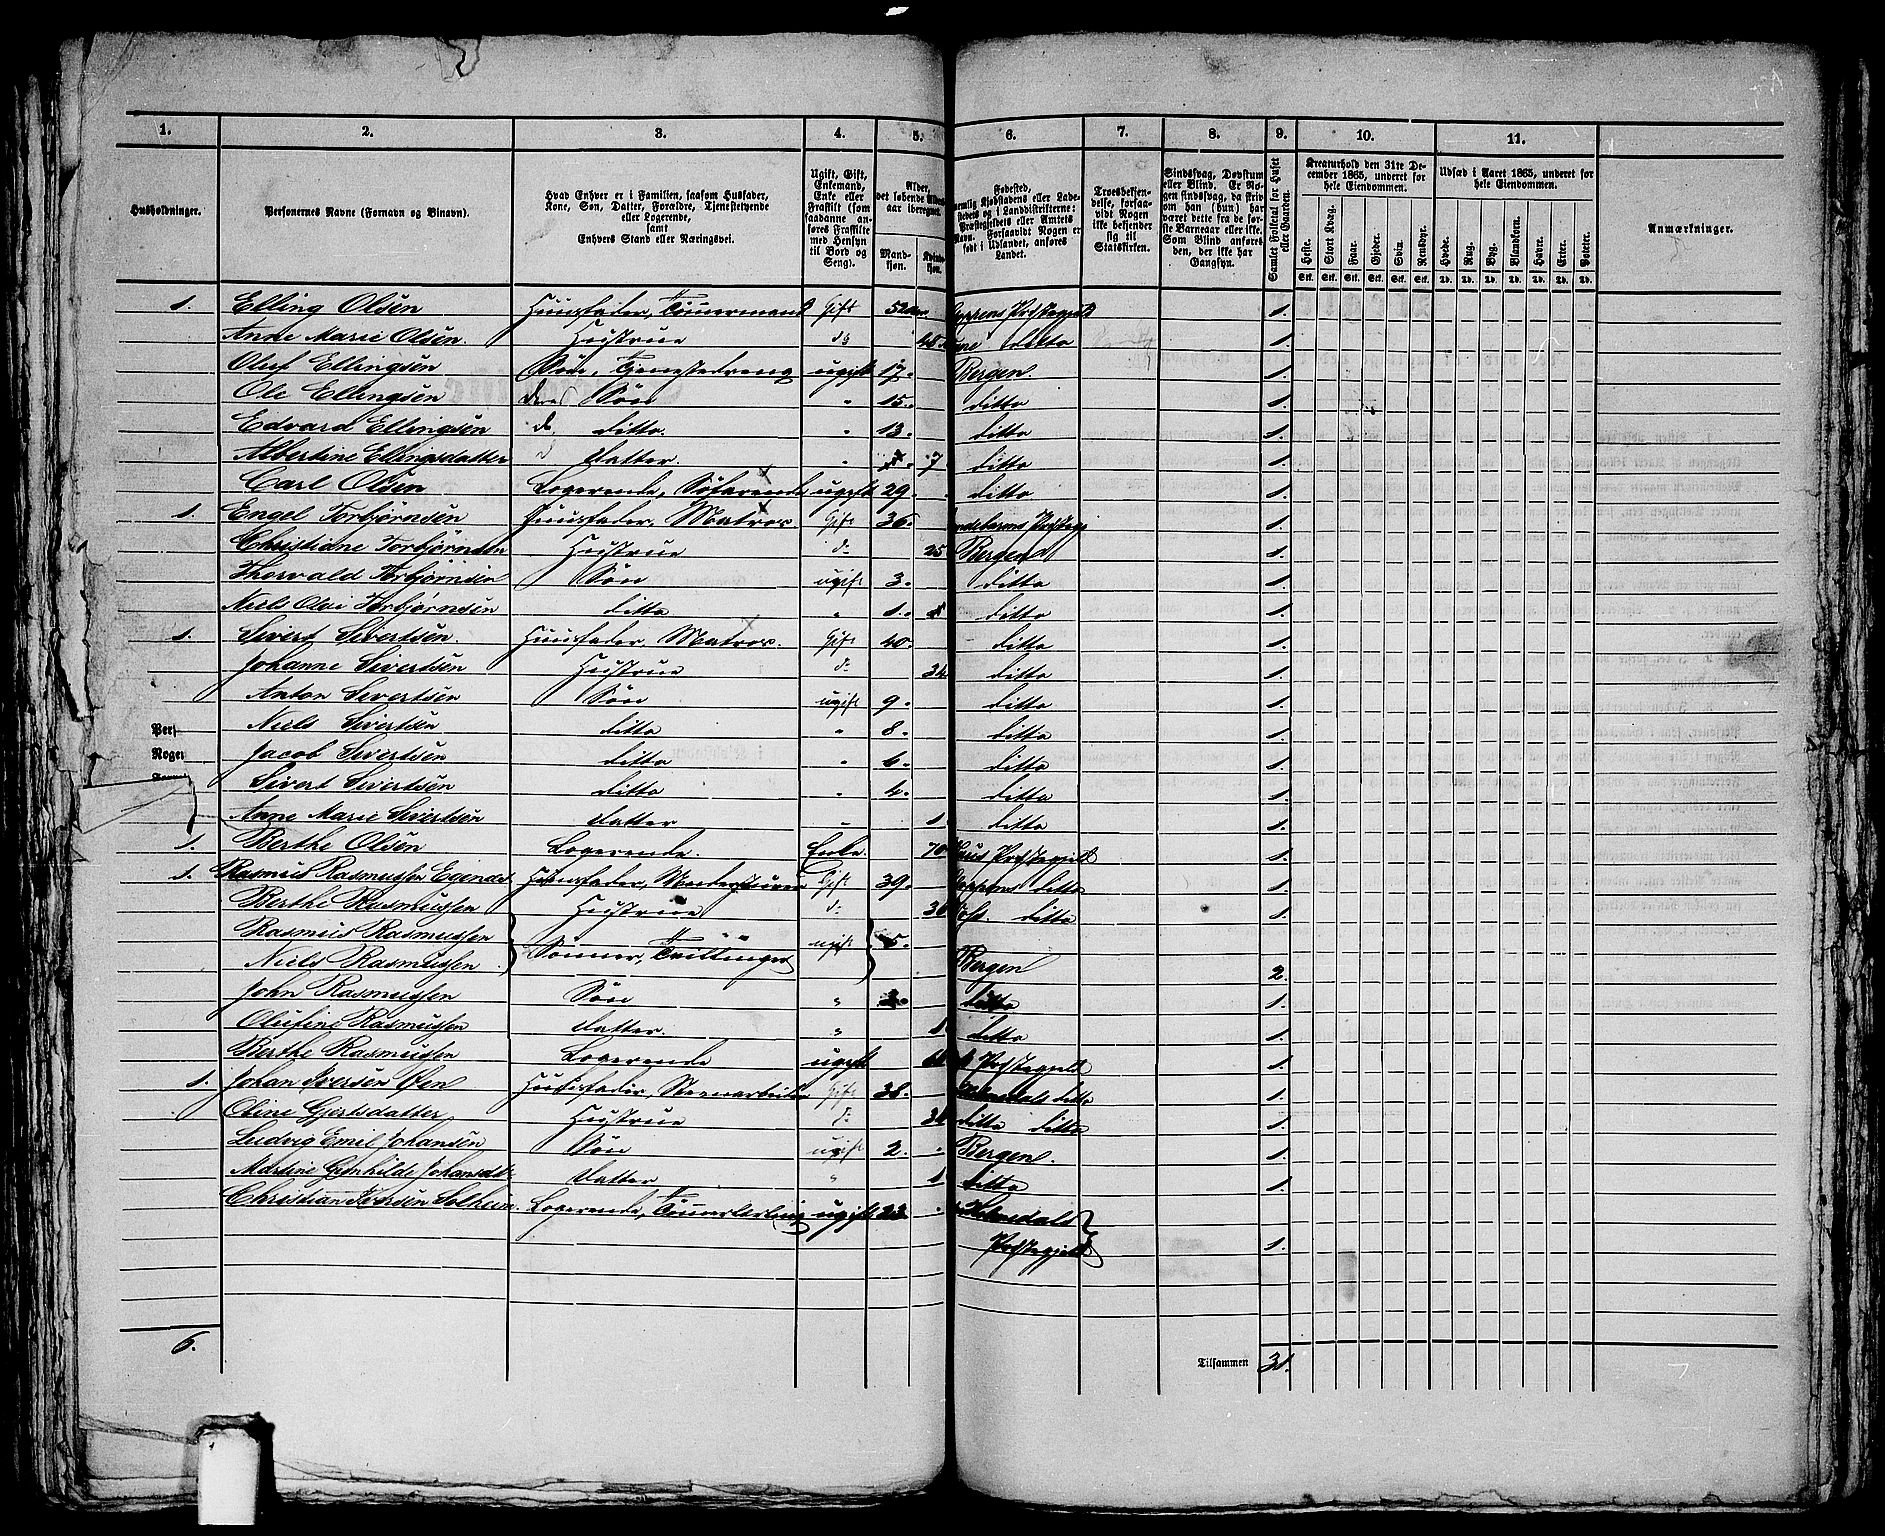 1. 2. 3. 4. 5. 6. 7. 8. 9. 10. 11.
Husholdninger.
Personernes Navne (Fornavn og Binavn).
Hvad Enhver er i Familien, saasom Husfader, Kone, Søn, Datter, Forældre, Tjenestetyende eller Logerende, samt Enhvers Stand eller Næringsvei.
Ugift, Gift, Enkemand, Enke eller Fraskilt (som saadanne anføres Fraskilte med Hensyn til Bord og Seng).
Alder, det løbende
aar iberegnet.
Mandkjøn.
Kvindekjøn.
Fødested,
Troesbekjendelse, forsaavidt Nogen ikke bekjender sig til Statskirken.
Sindssvag, Døvstum eller Blind. Er Nogen sindssvag, da skriv om han (hun) har været dette fra de første Barneaar eller ikke. Som Blind anføres den, der ikke har Gangsyn.
Samlet Folketal for Huset eller Gaarden.
Kreaturhold den 31te December 1865, underet for hele Eiendommen.
Heste. Stort Kvæg. Faar. Gjeder. Svin. Rensdyr.
Stk. Stk. Stk. Stk. Stk. Stk.
Udsæd i Aaret 1865, underet for hele Eiendommen.
Hvede. Rug. Byg. Blandkorn. Havre. Erter. Poteter.
Td. Td. Td. Td. Td. Td. Td.
Anmærkninger.
1. Elling Olsen Huusfader, Tømmermand Gift 52 Præstegjeld 1.
Anne Marie Olsen. Hustrue do ditto 1.
Oluf Ellingsen Søn, Tjenestedreng ugift 17. Bergen. 1.
Ole Ellingsen deres Søn " 15. ditto 1.
Edvard Ellingsen do ditto. " 13. ditto 1.
Albertine Ellingsdatter Datter. " 7 ditto 1.
Carl Olsen Logerende, Søfarende ugift 29. ditto 1.
1. Engel Torbjørnsen Huusfader, Matros. Gift 36. 1.
Christiane Torbjørnsen Hustrue do 25 Bergen 1.
Thorvald Torbjørnsen Søn ugift 3. ditto 1.
Niels Olai Torbjørnsen ditto " 1. ditto 1.
1. Sivert Sivertsen. Huusfader, Matros. Gift 40. ditto 1.
Johanne Sivertsen Hustrue do 34 ditto 1.
Anton Sivertsen Søn ugift 9. ditto 1.
Niels Sivertsen ditto " 8. ditto 1.
Jacob Sivertsen ditto " 6. ditto 1.
Sivert Sivertsen ditto " 4. ditto 1.
Anne Marie Sivertsen Datter " 1. ditto 1.
1. Berthe Olsen Logerende. Enke. 70 Haus Præstegjeld 1.
1. Rasmus Rasmussen Huusfader, Gift 39. ditto 1.
Berthe Rasmussen Hustrue do ditto 1.
Rasmus Rasmussen
Niels Rasmussen Sønner, Tvillinger ugift 5. Bergen 2.
John Rasmussen Søn " ditto 1.
Olufine Rasmussen Datter. " 1 ditto 1.
Berthe Rasmussen Logerende ugift Præstegjeld 1.
1. Johan Iversen Øen Huusfader, Steenarbeider Gift 38. ditto 1.
Oline Gjertsdatter Hustrue do ditto ditto 1.
Ludvig Emil Johansen Søn ugift 2. Bergen. 1.
Martine Gunhilde Johansdtr Datter " 1 ditto 1.
Christian Iversen Solheim. Logerende, Tømmerlærling ugift 23 Præstegjeld 1.
Pers
Noget
6.
Tilsammen 31.